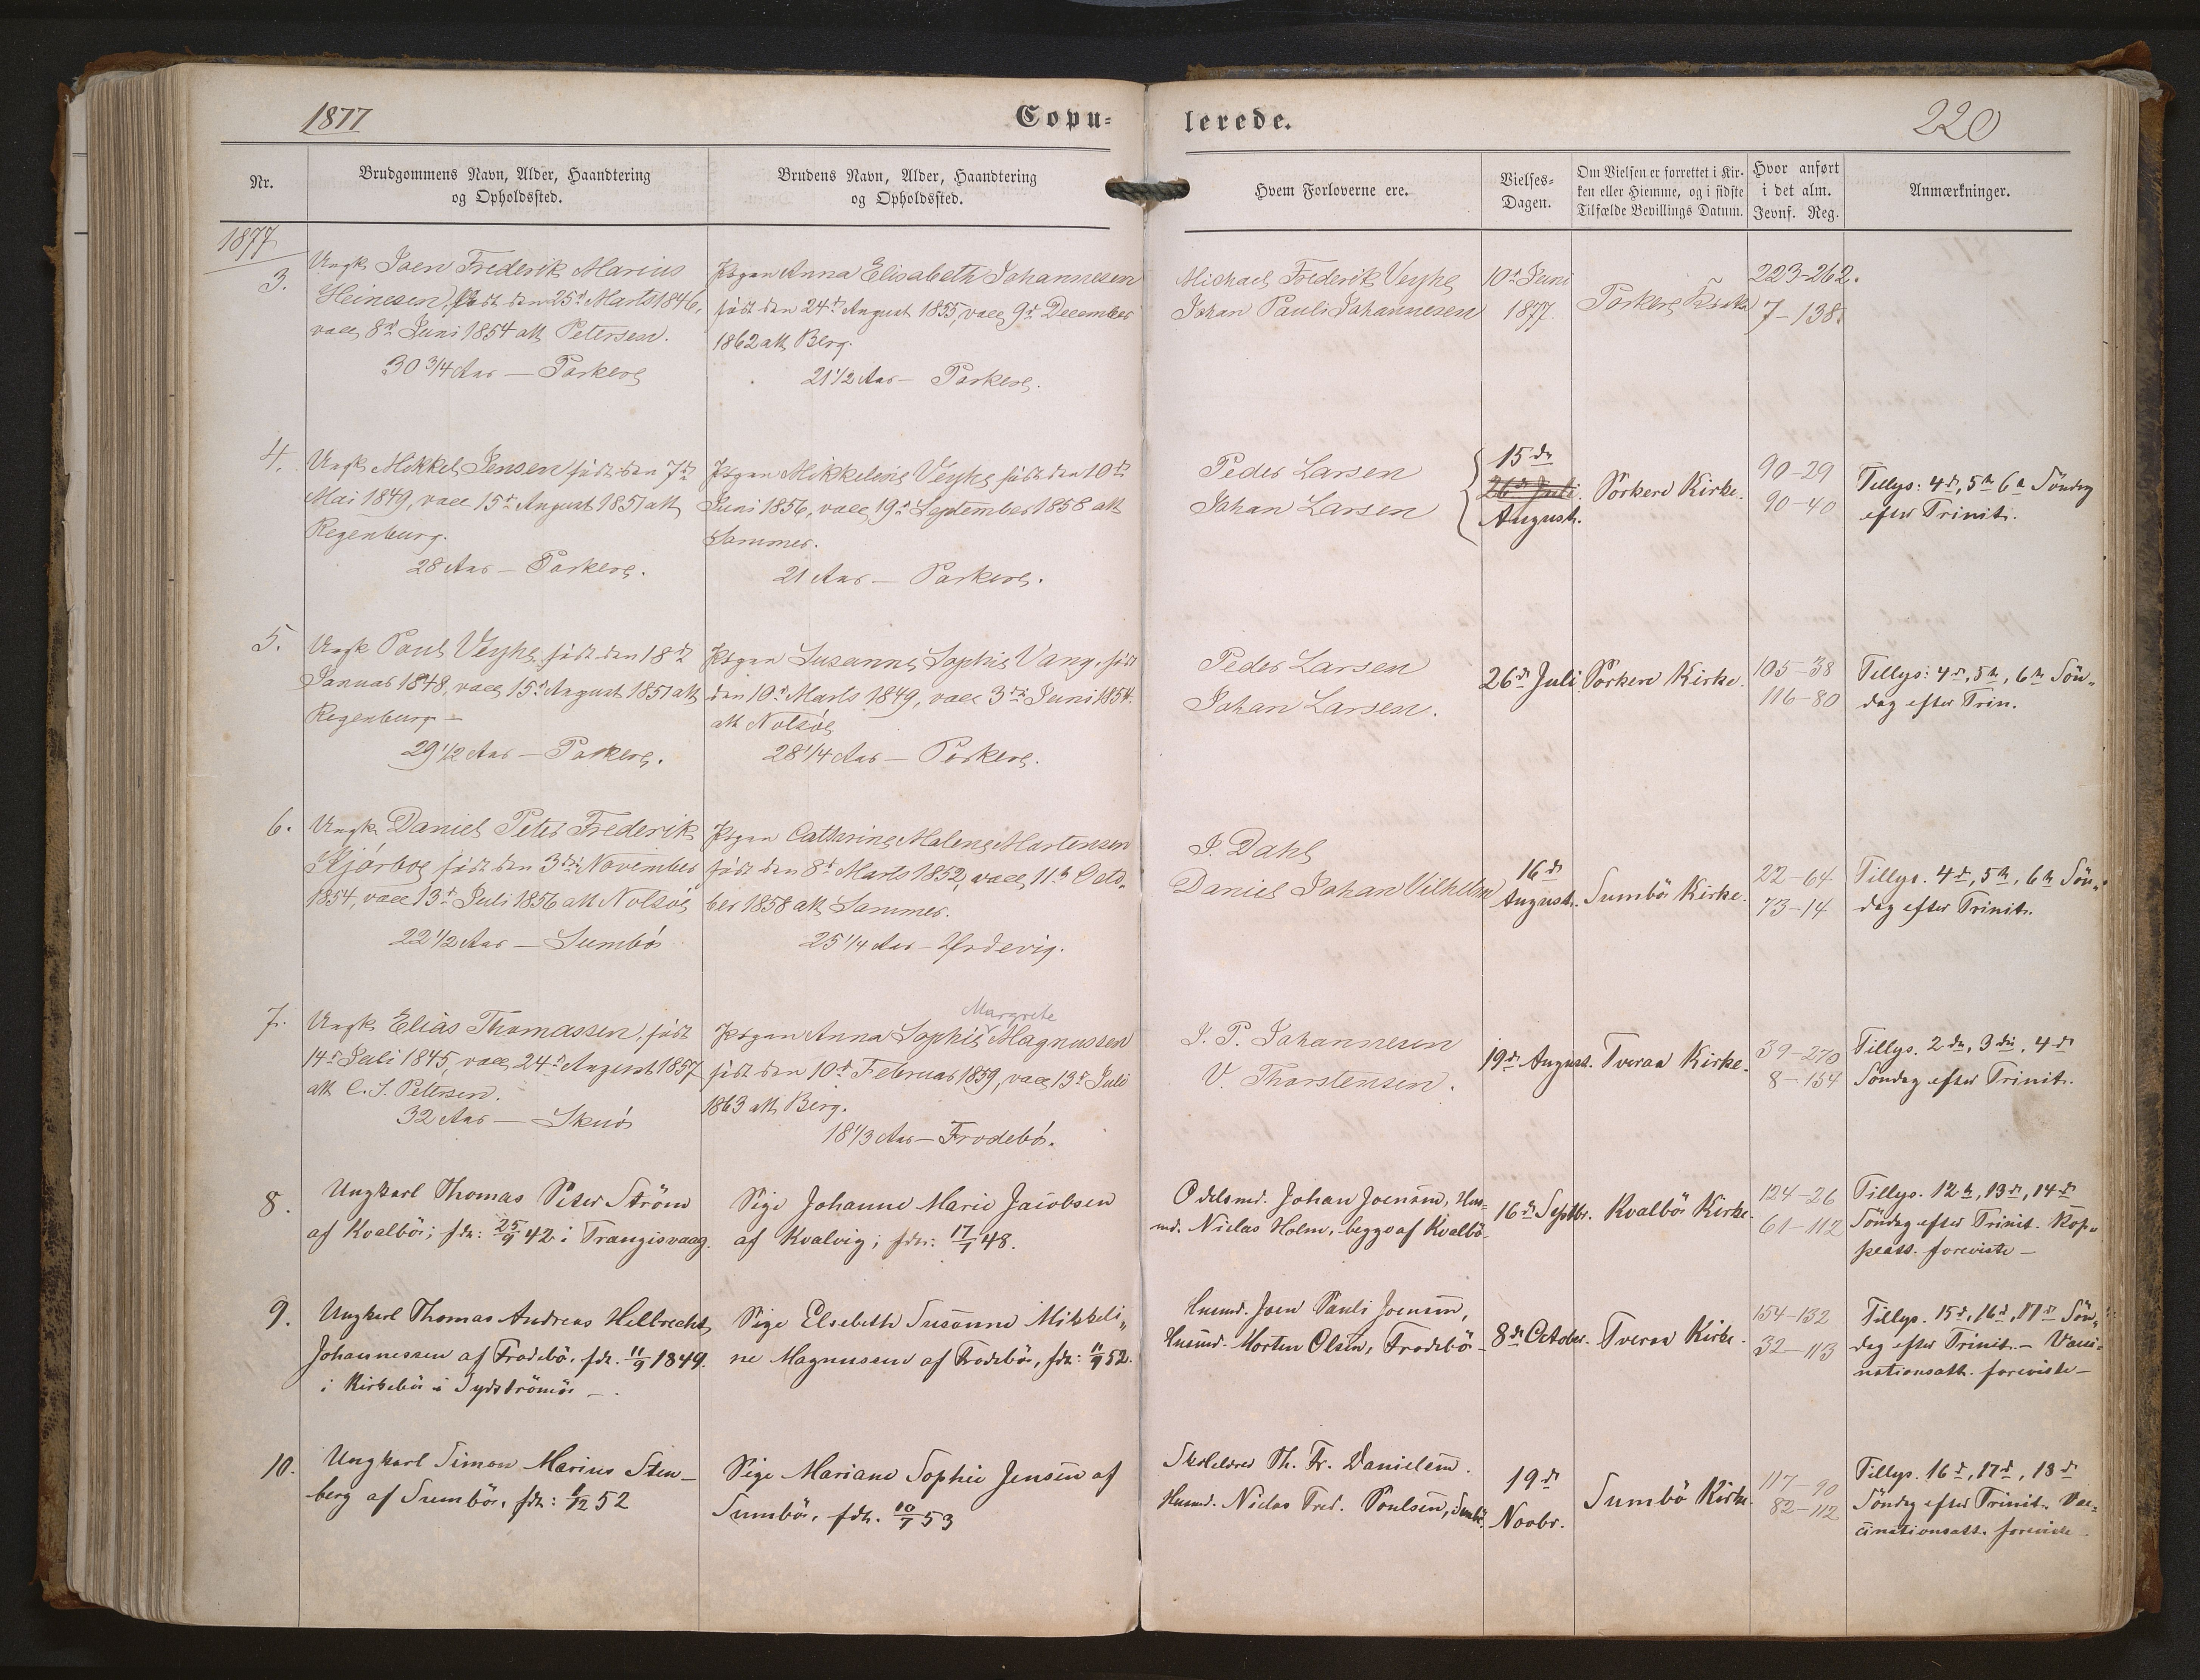 1877
Copu-
lerede.
220
Nr.
Brudgommens Navn, Alder, Haandtering
og Opholdssted.
Brudens Navn, Alder, Haandtering
og Opholdssted.
Hvem Forloverne ere.
Vielses-
Dagen.
Om Vielsen er forrettet i Kir-
ken eller Hiemme, og i sidste
Tilfælde Bevillings Datum.
Hvor anført
i det alm.
Jevnf. Reg.
Anmærkninger.
1877
3.
Ungk. Joen Frederik Marius
Heinesen, født den 25d Marts 1846,
vacc. 8d Juni 1854 att. Petersen.
30 3/4 Aar — Porkere
Pigen Anna Elisabeth Johannesen
født den 24de August 1855, vacc. 9d December
1862 att. Berg.
21 1/2 Aar — Porkere.
Michael Frederik Veyhe
Johan Pauli Johannesen
10d Juni
1877.
Porkere Kirke
223-262.
7-138.
4.
Ungk. Mikkel Jensen født den 7de
Mai 1849, vacc. 15d August 1851 att.
Regenburg.
28 Aar — Porkere.
Pigen Mikkeline Veyhe født den 10de
Juni 1856, vacc. 19d September 1858 att.
Sommer.
21 Aar — Porkere.
Peder Larsen
Johan Larsen
15de
26de Juli
August.
Porkere Kirke.
90-29
90-40
Tillys: 4d, 5te 6te Söndag
efter Trinit.
5.
Ungk. Poul Veyhe, født den 18de
Januar 1848, vacc. 15d August 1851 att.
Regenburg —
29 1/2 Aar — Porkere.
Pigen Susanne Sophie Vang, født
den 10d Marts 1849, vacc 3die Juni 1854.
att. Nolsøe
28 1/4 Aar — Porkere.
Peder Larsen
Johan Larsen.
26de Juli
Porkere Kirke.
105-38
116-80
Tillys: 4d, 5te, 6te Sön-
dag efter Trin.
6.
Ungk. Daniel Peter Frederik
Kjørboe født den 3die November
1854, vacc 13d Juli 1856 att. Nolsøe
22 1/2 Aar — Sumbö
Pigen Cathrine Malene Mortensen
født den 8d Marts 1852, vacc. 11te Octo-
ber 1858 att. Sommer.
25 1/4 Aar — Hrdevig.
J. Dahl
Daniel Johan Vilhelm
16de
August.
Sumbö Kirke.
22-64
73-14
Tillys. 4d, 5te, 6te Sön-
dag efter Trinit.
7.
Ungk. Elias Thomassen, født
14d Juli 1845, vacc. 24d August 1857
att. C. J. Petersen.
32 Aar — Skuö
Margrete
Pigen Anna Sophie Magnussen
født den 10d Februar 1859, vacc. 13d Juli
1863 att. Berg.
18 1/3 Aar — Frodebö.
J. P. Johannesen
V. Thorstensen.
19de August.
Tveraa Kirke.
39-270
8-154
Tillys. 2den, 3die, 4de
Söndag efter Trinit.
8.
Ungkarl Thomas Peter Ström
af Kvalbö; fdt: 25/9 42 i Trangisvaag.
Pige Johanne Marie Jacobsen
af Kvalvig; fdt: 17/7 48.
Odelsmd. Johan Joensen, Hus-
md. Niclas Holm, begge af Kvalbö
16de Septbr.
Kvalbö Kirke.
124-26
61-112
Tillys. 12te, 13de, 14de
Söndag efter Trinit. Kop-
peatt. foreviste —
9.
Ungkarl Thomas Andreas Heilbrecht
Johannessen af Frodebö. fdt. 11/9 1849.
i Kirkebö i Sydströmö —
Pige Elsebeth Susanne Mikkeli-
ne Magnussen af Frodebö, fdt: 11/9 52.
Husmd. Joen Pauli Joensen,
Husmd. Morten Olsen, Frodebö —
8de October.
Tveraa Kirke.
154-132
32-113
Tillys. 15d, 16d, 17de Sön-
dag efter Trinit. — Vacci-
nationsatt. foreviste —
10.
Ungkarl Simon Marius Sten-
berg af Sumbö, fdt: 1/12 52
Pige Mariane Sophie Jensen af
Sumbö, fdt. 10/7 53
Skolelærer Th. Fr. Danielsen.
Husmd. Niclas Fred. Poulsen, Sumbö.
19de
Novbr.
Sumbö Kirke.
117-90
82-112
Tillys. 16d, 17d, 18de
Söndag efter Trinit. Vac-
cinationsatt. foreviste —